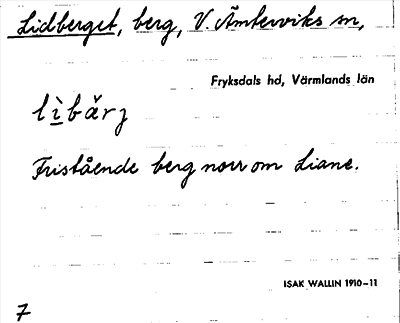 Lidberget, berg, V. Ämterviks sn,
Fryksdals hd, Värmlands län
lìbä̆rʒ
Fristående berg norr om Liane.
ISAK WALLIN 1910–11
7